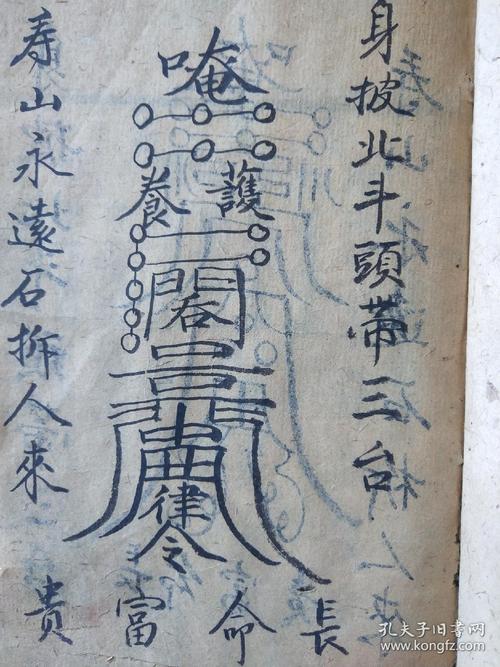 身披北斗頭帶三台
唵
護養
閣
律令
寿山永遠石拆人來
長命富貴
孔夫子旧书网
www.kongfz.com